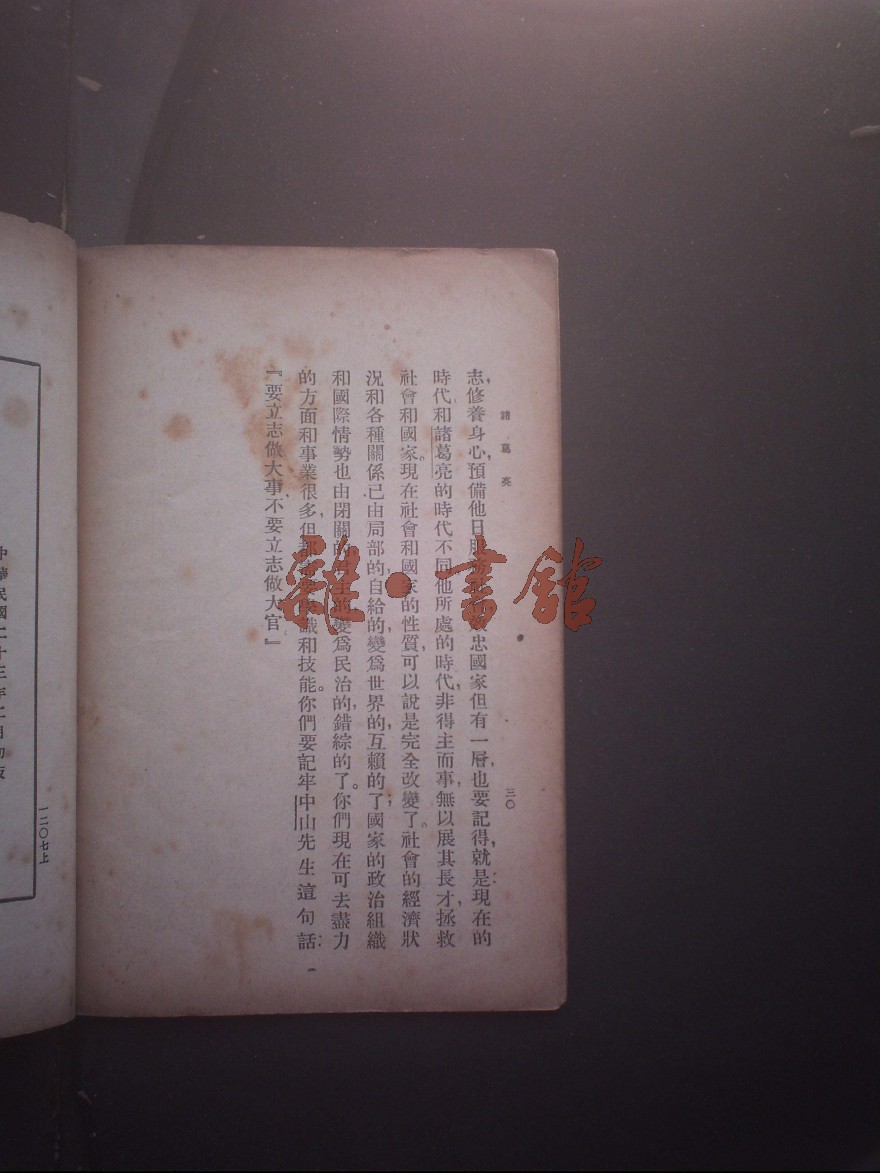 諸葛亮
三〇
志，修養身心，預備他日服忠國家但有一層，也要記得，就是：現在的
時代和諸葛亮的時代不同他所處的時代，非得主而事，無以展其長才，拯救
社會和國家。現在社會和國家的性質，可以說是完全改變了。社會的經濟狀
況和各種關係，已由局部的自給的，變爲世界的，互賴的了；國家的政治組織
和國際情勢也由閉關的的，變爲民治的，錯綜的了。你們現在可去盡力
的方面和事業很多，但都識和技能。你們要記牢中山先生這句話：
『要立志做大事，不要立志做大官』
中華民國二十三年二月初版
一二〇七上
雜·書館